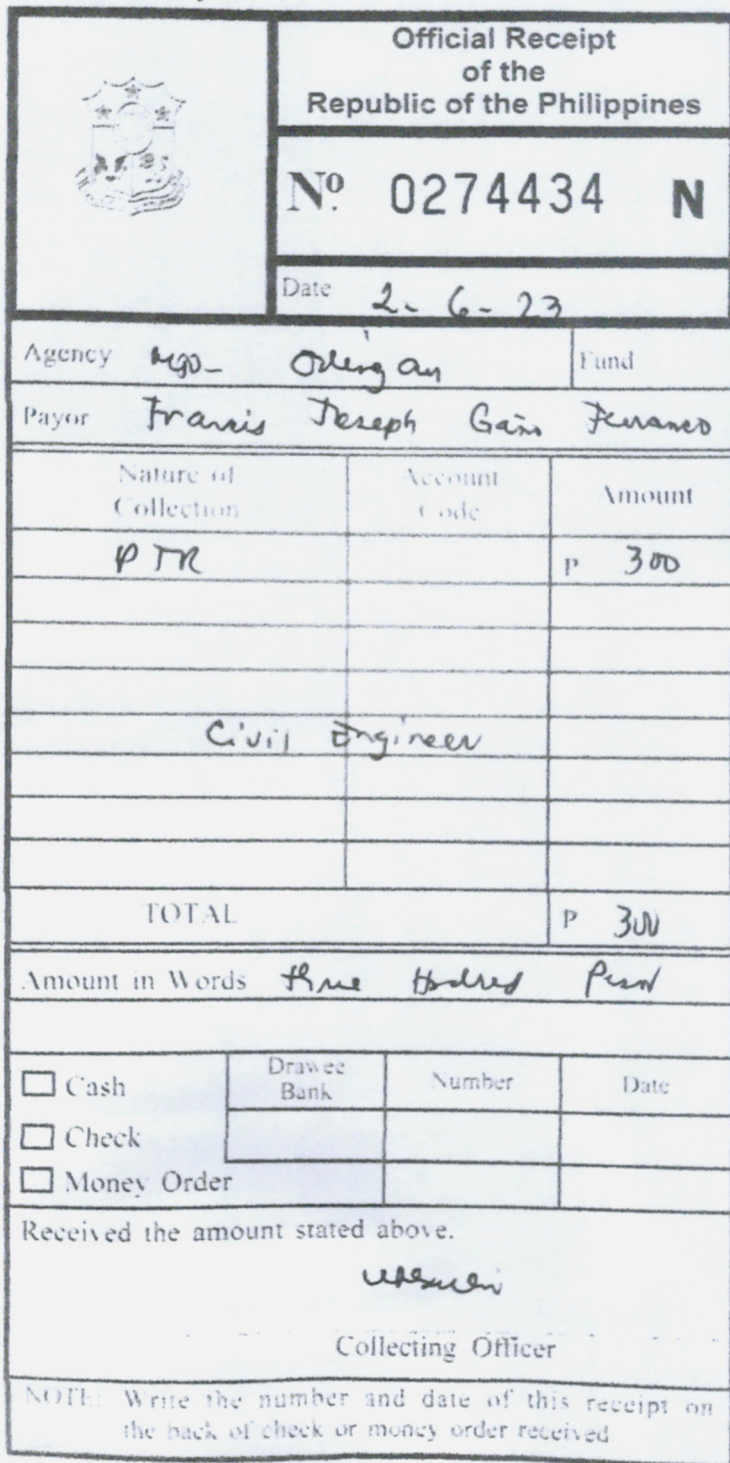 Official Receipt
of the
Republic of the Philippines
Nº 0274434 N
Date 2-6-23
Agency
Fund
Payor Francis Joseph
Nature of Collection
Account Code
Amount
PTR P 300
Civil Engineer
TOTAL P 300
Amount in Words three Hndred
Cash
Drawee Bank
Number
Date
Check
Money Order
Received the amount stated above.
Collecting Officer
NOTE: Write the number and date of this receipt on
the back of check or money order received